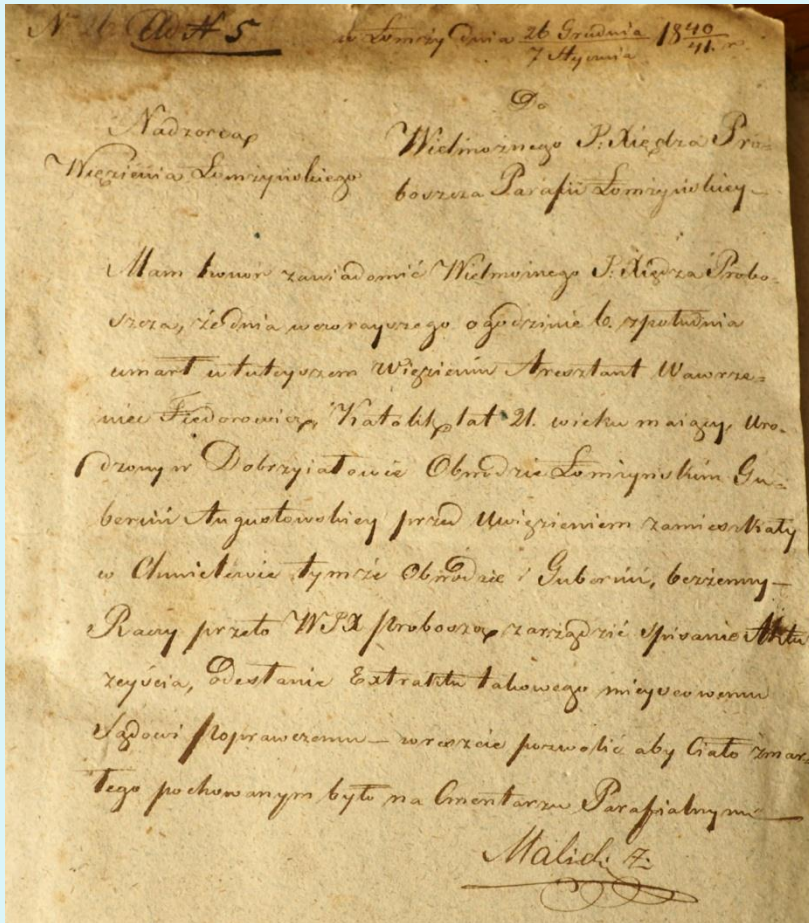 Ad N 5 w Łomży dnia 26 Grudnia / 7 Stycznia 1840/41. r
Do
Nadzorca
Więzienia Łomżyńskiego
Wielmożnego J: Xiędza Pro=
boszcza Parafii Łomżyńskiey
Mam honor zawiadomić Wielmożnego J: Xiędza Probo=
szcza, że dnia wczorayszego o godzinie 6. z południa
umarł w tuteyszem Więzieniu Aresztant Wawrze=
niec Fiedorowicz, Katolik, lat 21. wieku maiący, Uro=
dzony w Dobrzyiałowie Obwodzie Łomżyńskim Gu=
bernii Augustowskiey przed Uwięzieniem zamieszkały
w Chmielewie tymże Obwodzie i Gubernii, bezżenny—
Raczy przeto WJX Proboszcz zarządzić spisanie Aktu
zeyścia, Odesłanie Extraktu takowego mieyscowemu
Sądowi Poprawczemu— wreszcie pozwolić aby Ciało zmar=
łego pochowanym było na Cmentarzu Parafialnym—